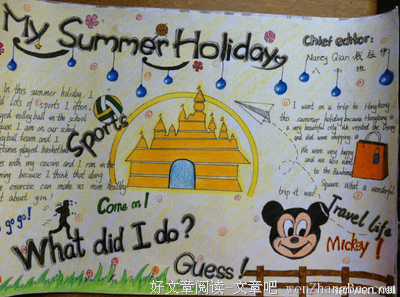 My Summer Holiday
Chief editor:
Nancy Qian
In this summer holiday, I
did lots of sports. I often
played volleyball in the school
because I am on our school
volleyball team and I
sometimes played basketball
with my cousins and I ran in the
because I think that doing
exercise can make us more healthy
What about you?
go go go!
Sports
Come on!
I went on a trip to Hong Kong
this summer holiday because Hong Kong is
a very beautiful city. We visited the Disney
and did some shopping
We were very happy
and we also
to the
Square. What a wonderful
trip it was!
Travel life
Mickey
What did I do?
Guess!
好文章阅读-文章吧 wenzhangba.com